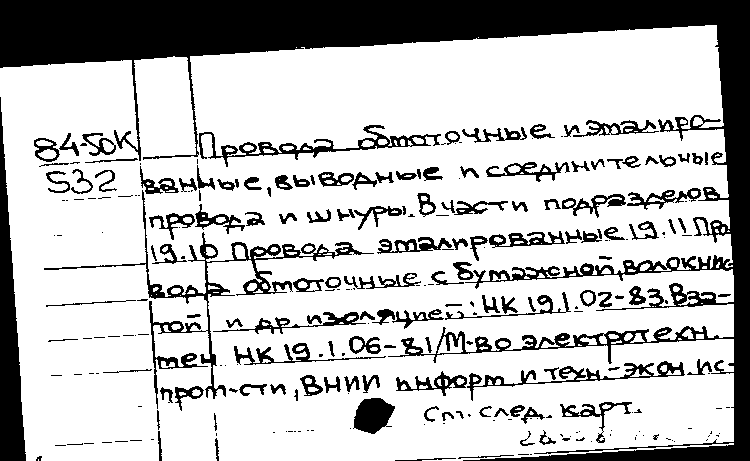 84-50К Провода обмоточные и эмалиро-
532 ванные, выводные и соединительные
провода и шнуры. В части подразделов
19.10 Провода эмалированные 19.11 Про
вода обмоточные с бумажной, волокнис
той и др. изоляцией: НК 19.1.02-83. Вза-
мен НК 19.1.06-81/М-во электротехн.
пром-сти, ВНИИ информ и техн.-экон. ис-
См. след. карт.